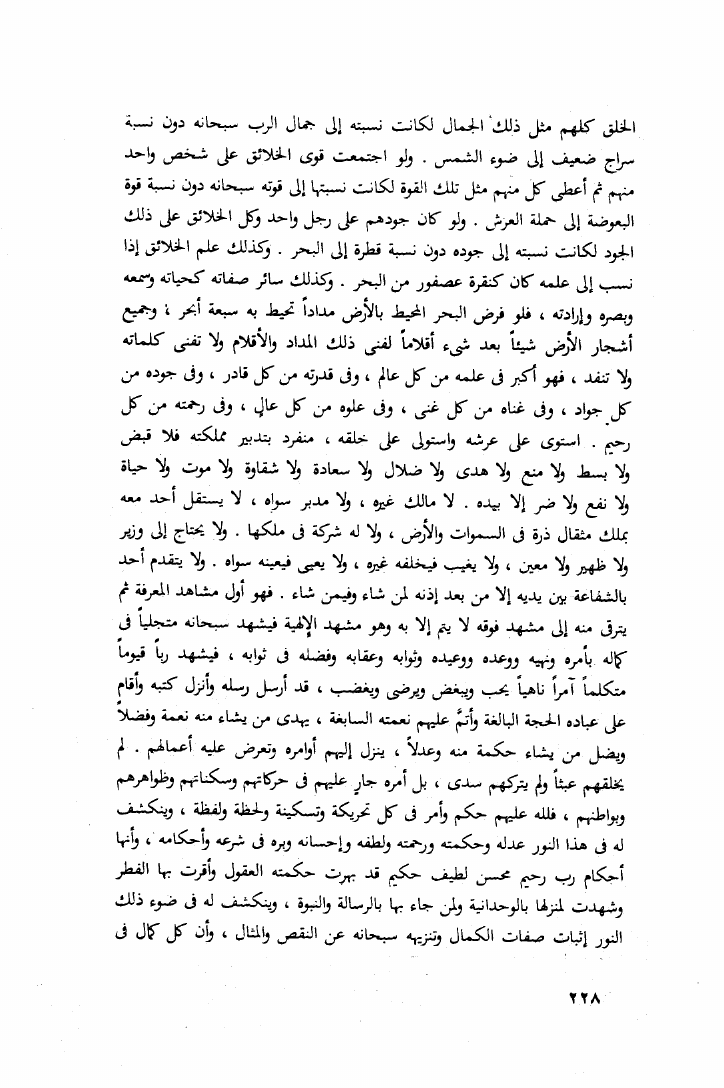 الخلق كلهم مثل ذلك الجمال لكانت نسبته إلى جمال الرب سبحانه دون نسبة
سراج ضعيف إلى ضوء الشمس . ولو اجتمعت قوى الخلائق على شخص واحد
منهم ثم أعطى كل منهم مثل تلك القوة لكانت نسبتها إلى قوته سبحانه دون نسبة قوة
البعوضة إلى حملة العرش . ولو كان جودهم على رجل واحد وكل الخلائق على ذلك
الجود لكانت نسبته إلى جوده دون نسبة قطرة إلى البحر . وكذلك علم الخلائق إذا
نسب إلى علمه كان كنقرة عصفور من البحر . وكذلك سائر صفاته كحياته وسمعه
وبصره وإرادته ، فلو فرض البحر المحيط بالأرض مداداً تحيط به سبعة أبحر ؛ وجميع
أشجار الأرض شيئاً بعد شىء أقلاماً لفنى ذلك المداد والأقلام ولا تفنى كلماته
ولا تنفد ، فهو أكبر فى علمه من كل عالم ، وفى قدرته من كل قادر ، وفى جوده من
كل جواد ، وفى غناه من كل غنى ، وفى علوه من كل عالٍ ، وفى رحمته من كل
رحيم . استوى على عرشه واستولى على خلقه ، منفرد بتدبير مملكته فلا قبض
ولا بسط ولا منع ولا هدى ولا ضلال ولا سعادة ولا شقاوة ولا موت ولا حياة
ولا نفع ولا ضر إلا بيده . لا مالك غيره ، ولا مدبر سواه ، لا يستقل أحد معه
بملك مثقال ذرة فى السموات والأرض ، ولا له شركة فى ملكها . ولا يحتاج إلى وزير
ولا ظهير ولا معين ، ولا يغيب فيخلفه غيره ، ولا يعيى فيعينه سواه . ولا يتقدم أحد
بالشفاعة بين يديه إلا من بعد إذنه لمن شاء وفيمن شاء . فهو أول مشاهد المعرفة ثم
يترقى منه إلى مشهد فوقه لا يتم إلا به وهو مشهد الإلهية فيشهد سبحانه متجلياً فى
كماله بأمره ونهيه ووعده ووعيده وثوابه وعقابه وفضله فى ثوابه ، فيشهد رباً قيوماً
متكلماً آمراً ناهياً يحب ويبغض ويرضى ويغضب ، قد أرسل رسله وأنزل كتبه وأقام
على عباده الحجة البالغة وأتمَّ عليهم نعمته السابغة ، يهدى من يشاء منه نعمة وفضلاً
ويضل من يشاء حكمة منه وعدلاً ، ينزل إليهم أوامره وتعرض عليه أعمالهم . لم
يخلقهم عبثاً ولم يتركهم سدى ، بل أمره جارٍ عليهم فى حركاتهم وسكناتهم وظواهرهم
وبواطنهم ، فلله عليهم حكم وأمر فى كل تحريكة وتسكينة ولحظة ولفظة ، وينكشف
له فى هذا النور عدله وحكمته ورحمته ولطفه وإحسانه وبره فى شرعه وأحكامه ، وأنها
أحكام رب رحيم محسن لطيف حكيم قد بهرت حكمته العقول وأقرت بها الفطر
وشهدت لمنزلها بالوحدانية ولمن جاء بها بالرسالة والنبوة ، وينكشف له فى ضوء ذلك
النور إثبات صفات الكمال وتنزيهه سبحانه عن النقص والمثال ، وأن كل كمال فى
٢٢٨